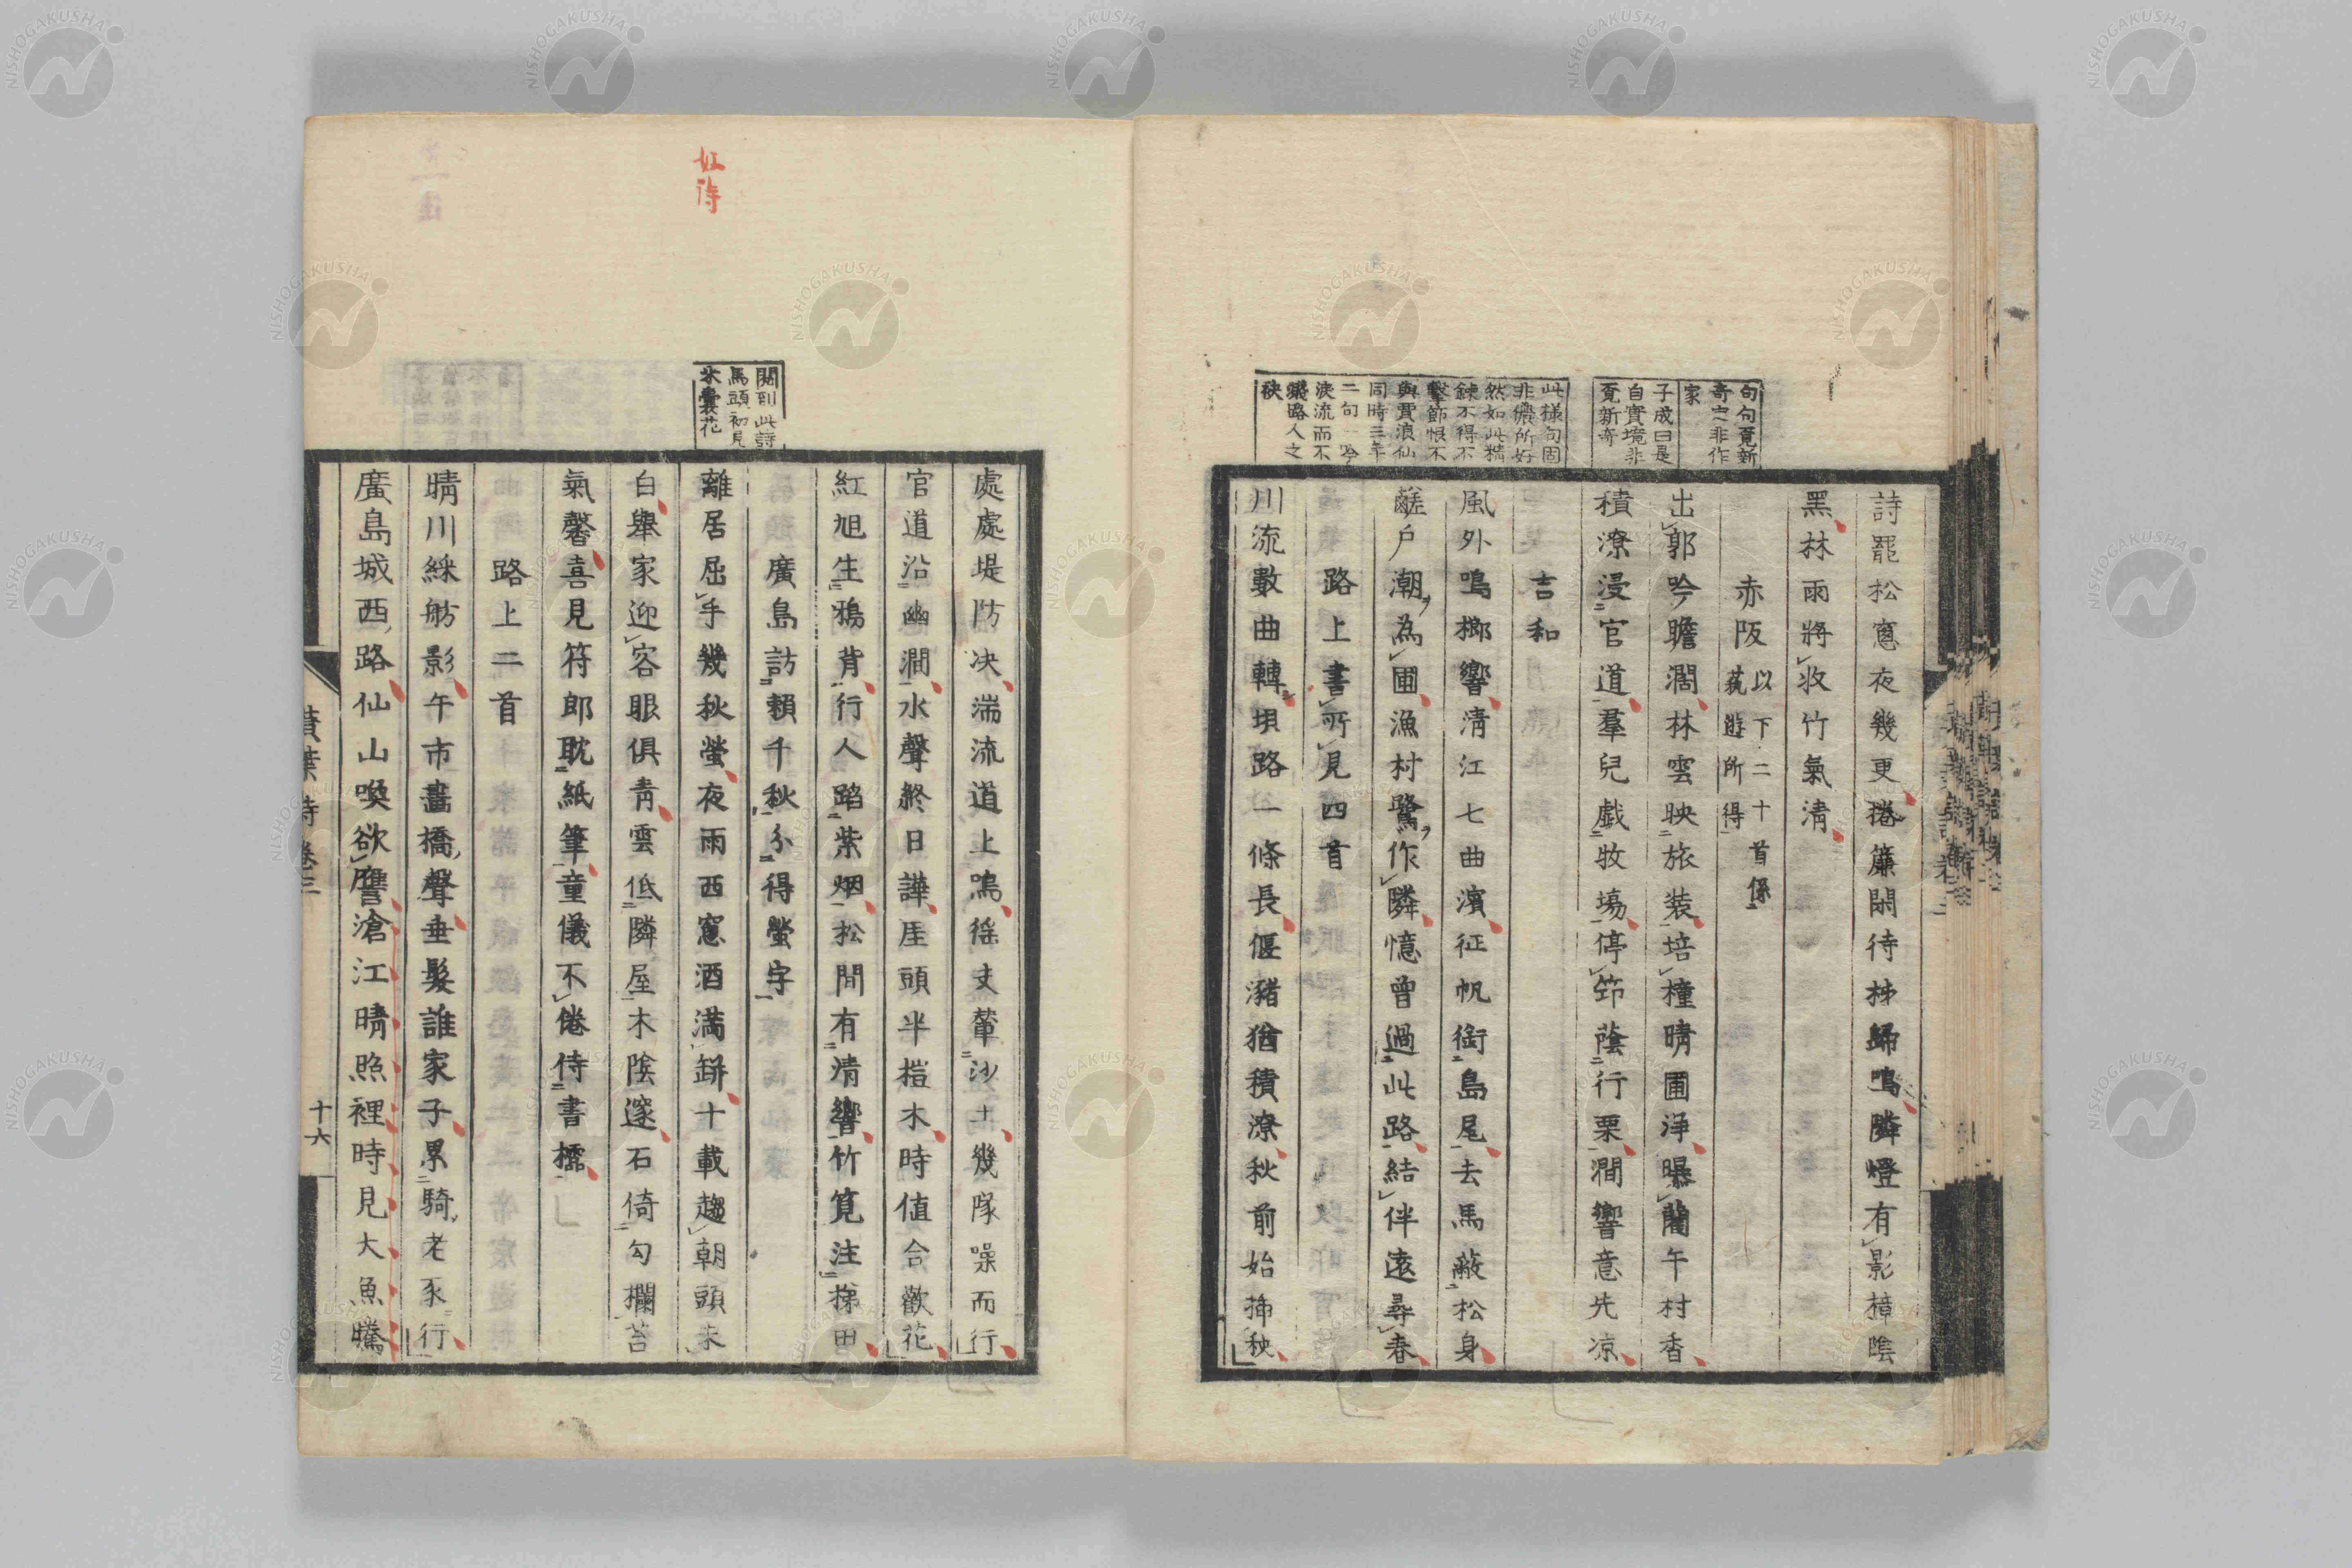 句句覓新
奇定非作
家
子成曰是
自實境非
覓新奇
此様句固
非儂所好
然如此精
錬不得不
擊節恨不
與賈浪仙
同時三年
二句一吟
淚流而不
詩罷松窻夜幾更捲簾閑待姊歸鳴隣燈有影樟陰
黑林雨將收竹氣清
赤阪以下二十首係
茲遊所得
出郭吟瞻濶林雲映旅裝培橦晴圃淨曝藺午村香
積潦浸官道羣兒戲牧場停笻蔭行栗澗響意先凉
吉和
風外鳴榔響清江七曲濱征帆銜島尾去馬蔽松身
鹺戶潮為圃漁村鷺作隣憶曾過此路結伴遠尋春
路上書所見四首
川流數曲轉垻路一條長偃瀦猶積潦秋前始揷秧
閱到此詩
馬頭初見
米囊花
處處堤防決湍流道上鳴徭丈輦沙土幾隊噪而行
官道沿幽澗水聲終日譁厓頭半榿木時値合歡花
紅旭生鴉背行人踏紫烟松間有清響竹筧注梯田
廣島訪賴千秋分得螢字
離居屈手幾秋螢夜雨西窻酒満缾十載趨朝頭未
白舉家迎客眼俱青雲低隣屋木陰邃石倚勾欄苔
氣馨喜見符郎耽紙筆童儀不倦侍書櫺
路上二首
晴川綵舫影午市畵橋聲垂髮誰家子累騎老豕行
廣島城西路仙山喚欲譍滄江晴照裡時見大魚騰
十六
NISHOGAKUSHA